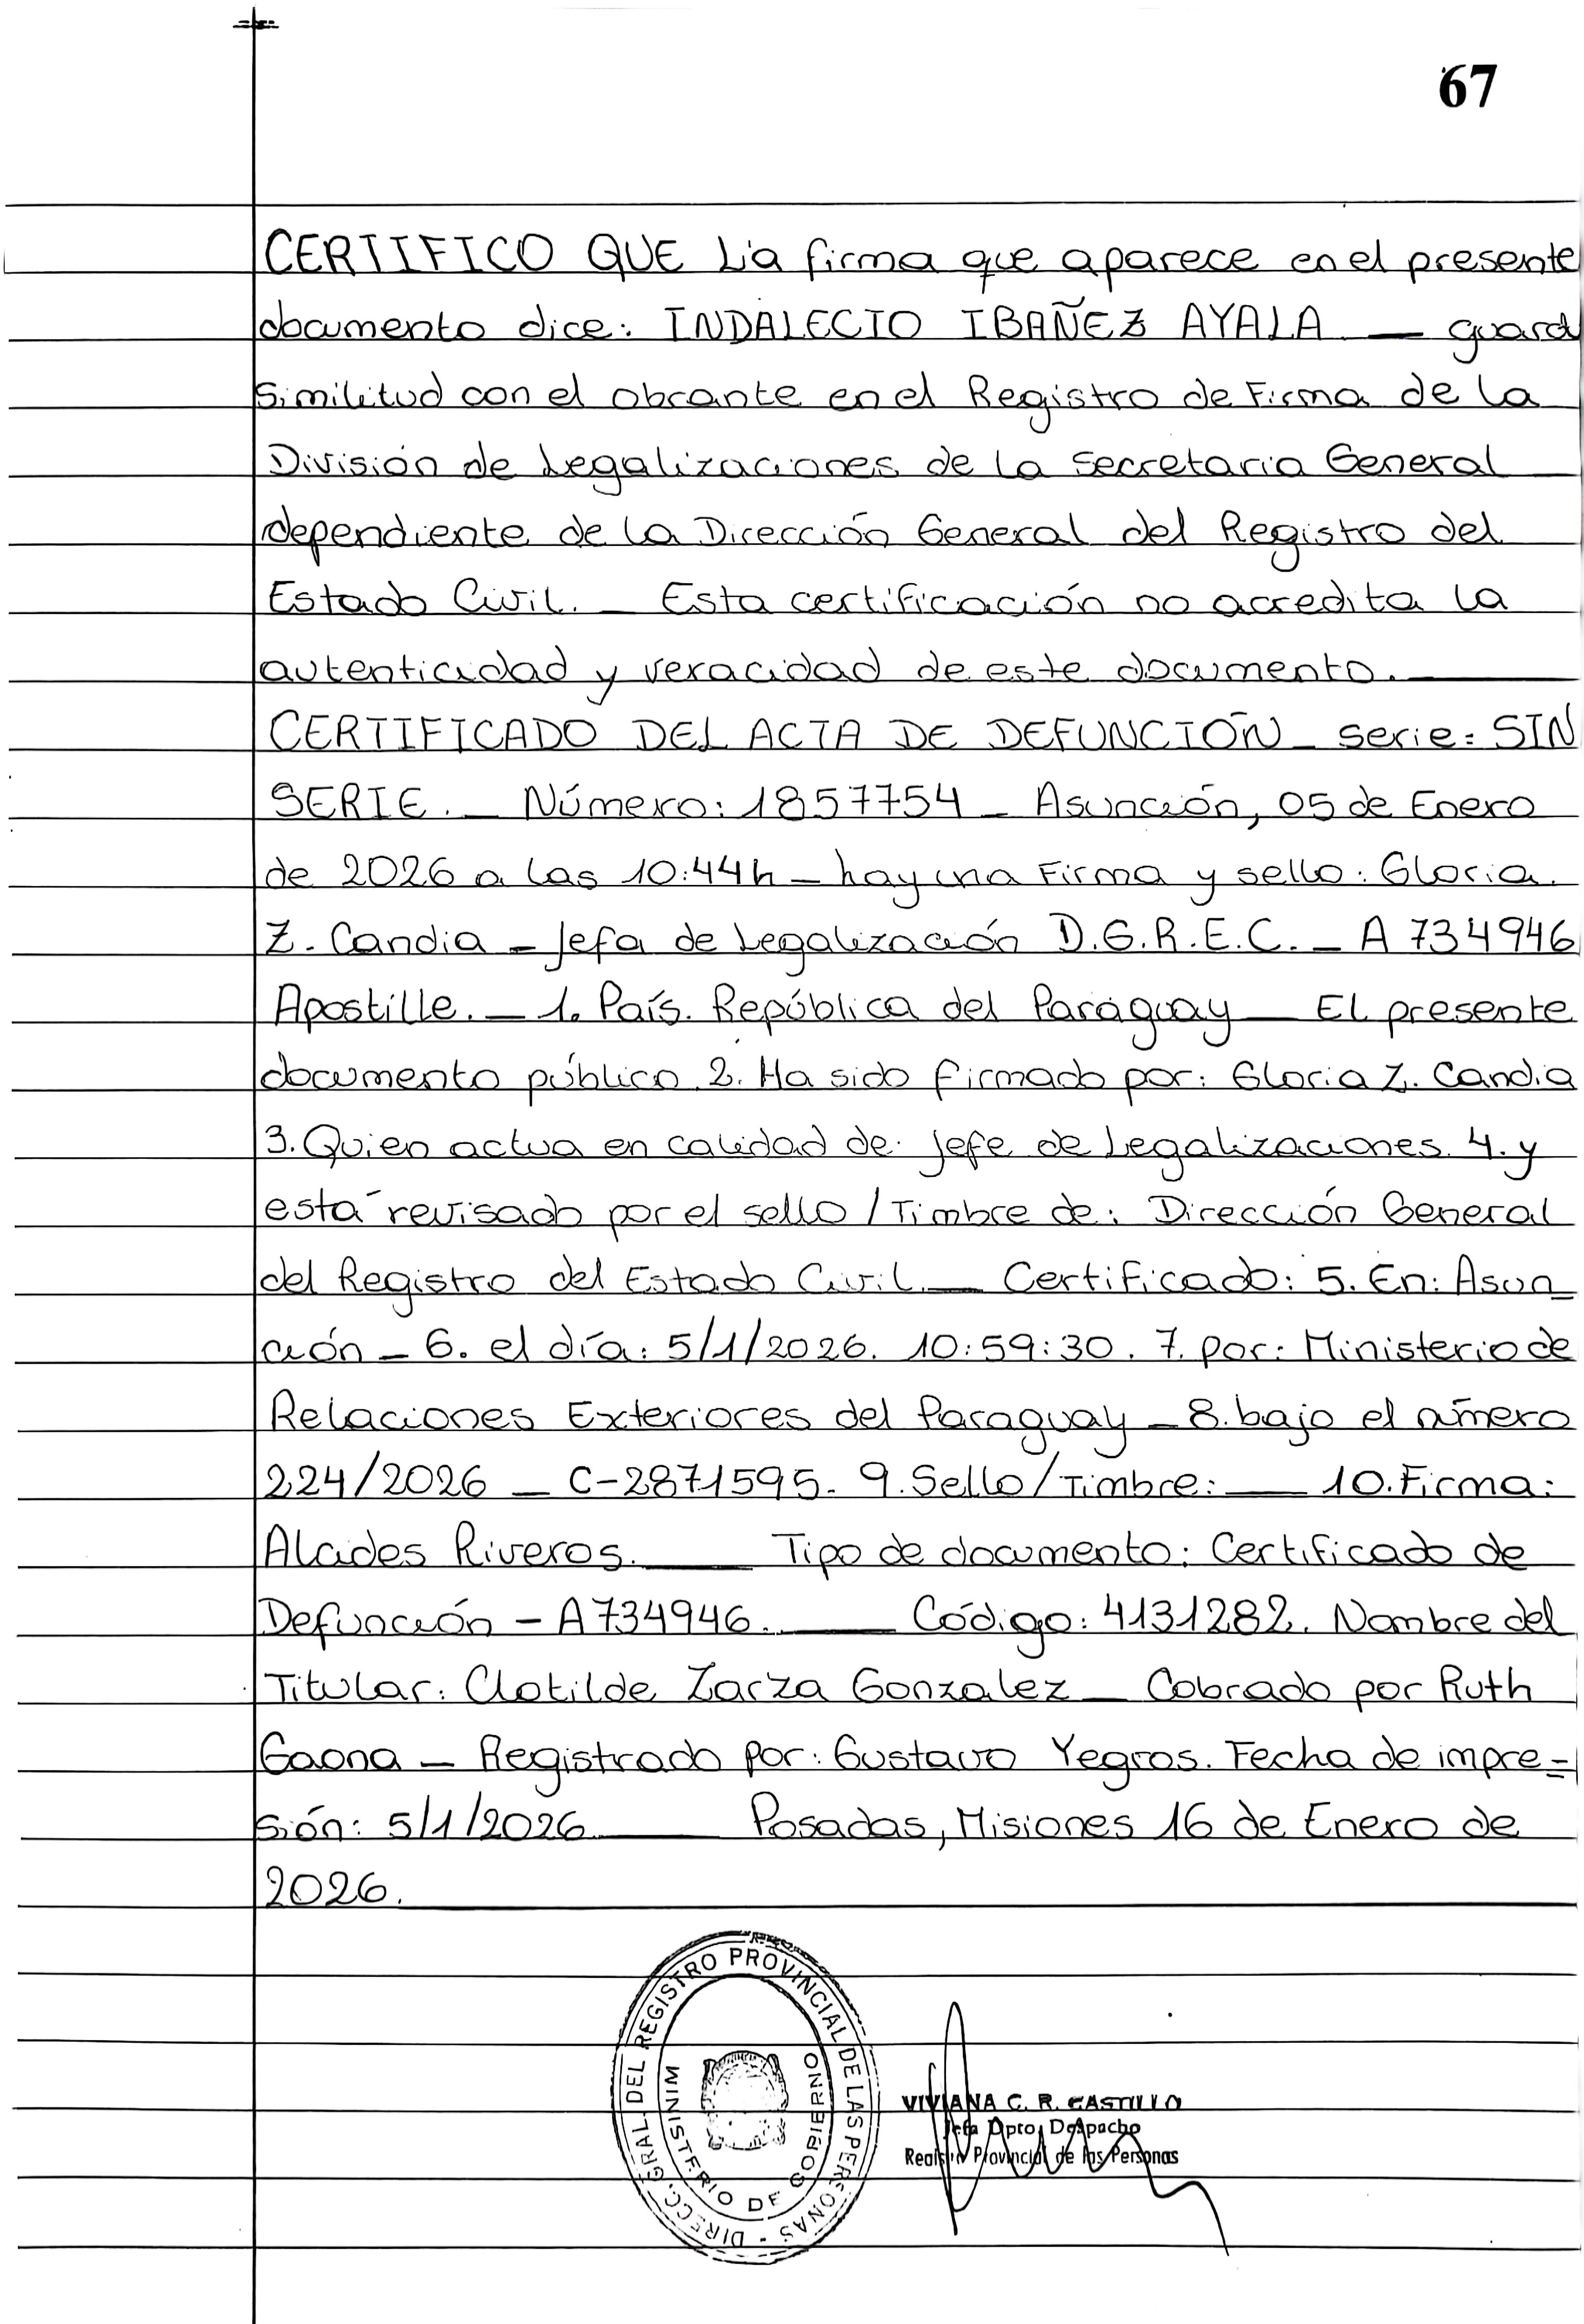 67
CERTIFICO QUE La firma que aparece en el presente
documento dice: INDALECIO IBAÑEZ AYALA — guard
similitud con el obrante en el Registro de Firma de la
División de Legalizaciones de la secretaria General
dependiente de la Dirección General del Registro del
Estado Civil. — Esta certificación no acredita la
autenticidad y veracidad de este documento. —
CERTIFICADO DEL ACTA DE DEFUNCIÓN — serie: SIN
SERIE. — Número: 1857754 — Asunción, 05 de Enero
de 2026 a las 10:44h — hay una Firma y sello: Gloria.
Z. Candia — Jefa de Legalización D.G.R.E.C. — A 734946
Apostille. — 1. País. República del Paraguay — El presente
documento público 2. Ha sido firmado por: Gloria Z. Candia
3. Quien actua en calidad de: jefe de Legalizaciones. 4. y
está revisado por el sello / Timbre de: Dirección General
del Registro del Estado Civil. — Certificado: 5. En: Asun_
ción — 6. el día: 5/1/2026. 10:59:30. 7. por: Ministerio de
Relaciones Exteriores del Paraguay — 8. bajo el número
224/2026 — C-2871595. 9. Sello/Timbre: — 10. Firma:
Alcides Riveros. — Tipo de documento: Certificado de
Defunción — A734946. — Código: 4131282. Nombre del
Titular: Clotilde Zarza Gonzalez — Cobrado por Ruth
Gaona — Registrado por: Gustavo Yegros. Fecha de impre=
sión: 5/1/2026 — Posadas, Misiones 16 de Enero de
2026.
DIRECC. GRAL. DEL REGISTRO PROVINCIAL DE LAS PERSONAS -
MINISTERIO DE GOBIERNO
VIVIANA C. R. CASTILLO
Jefa Dpto. Despacho
Registro Provincial de las Personas